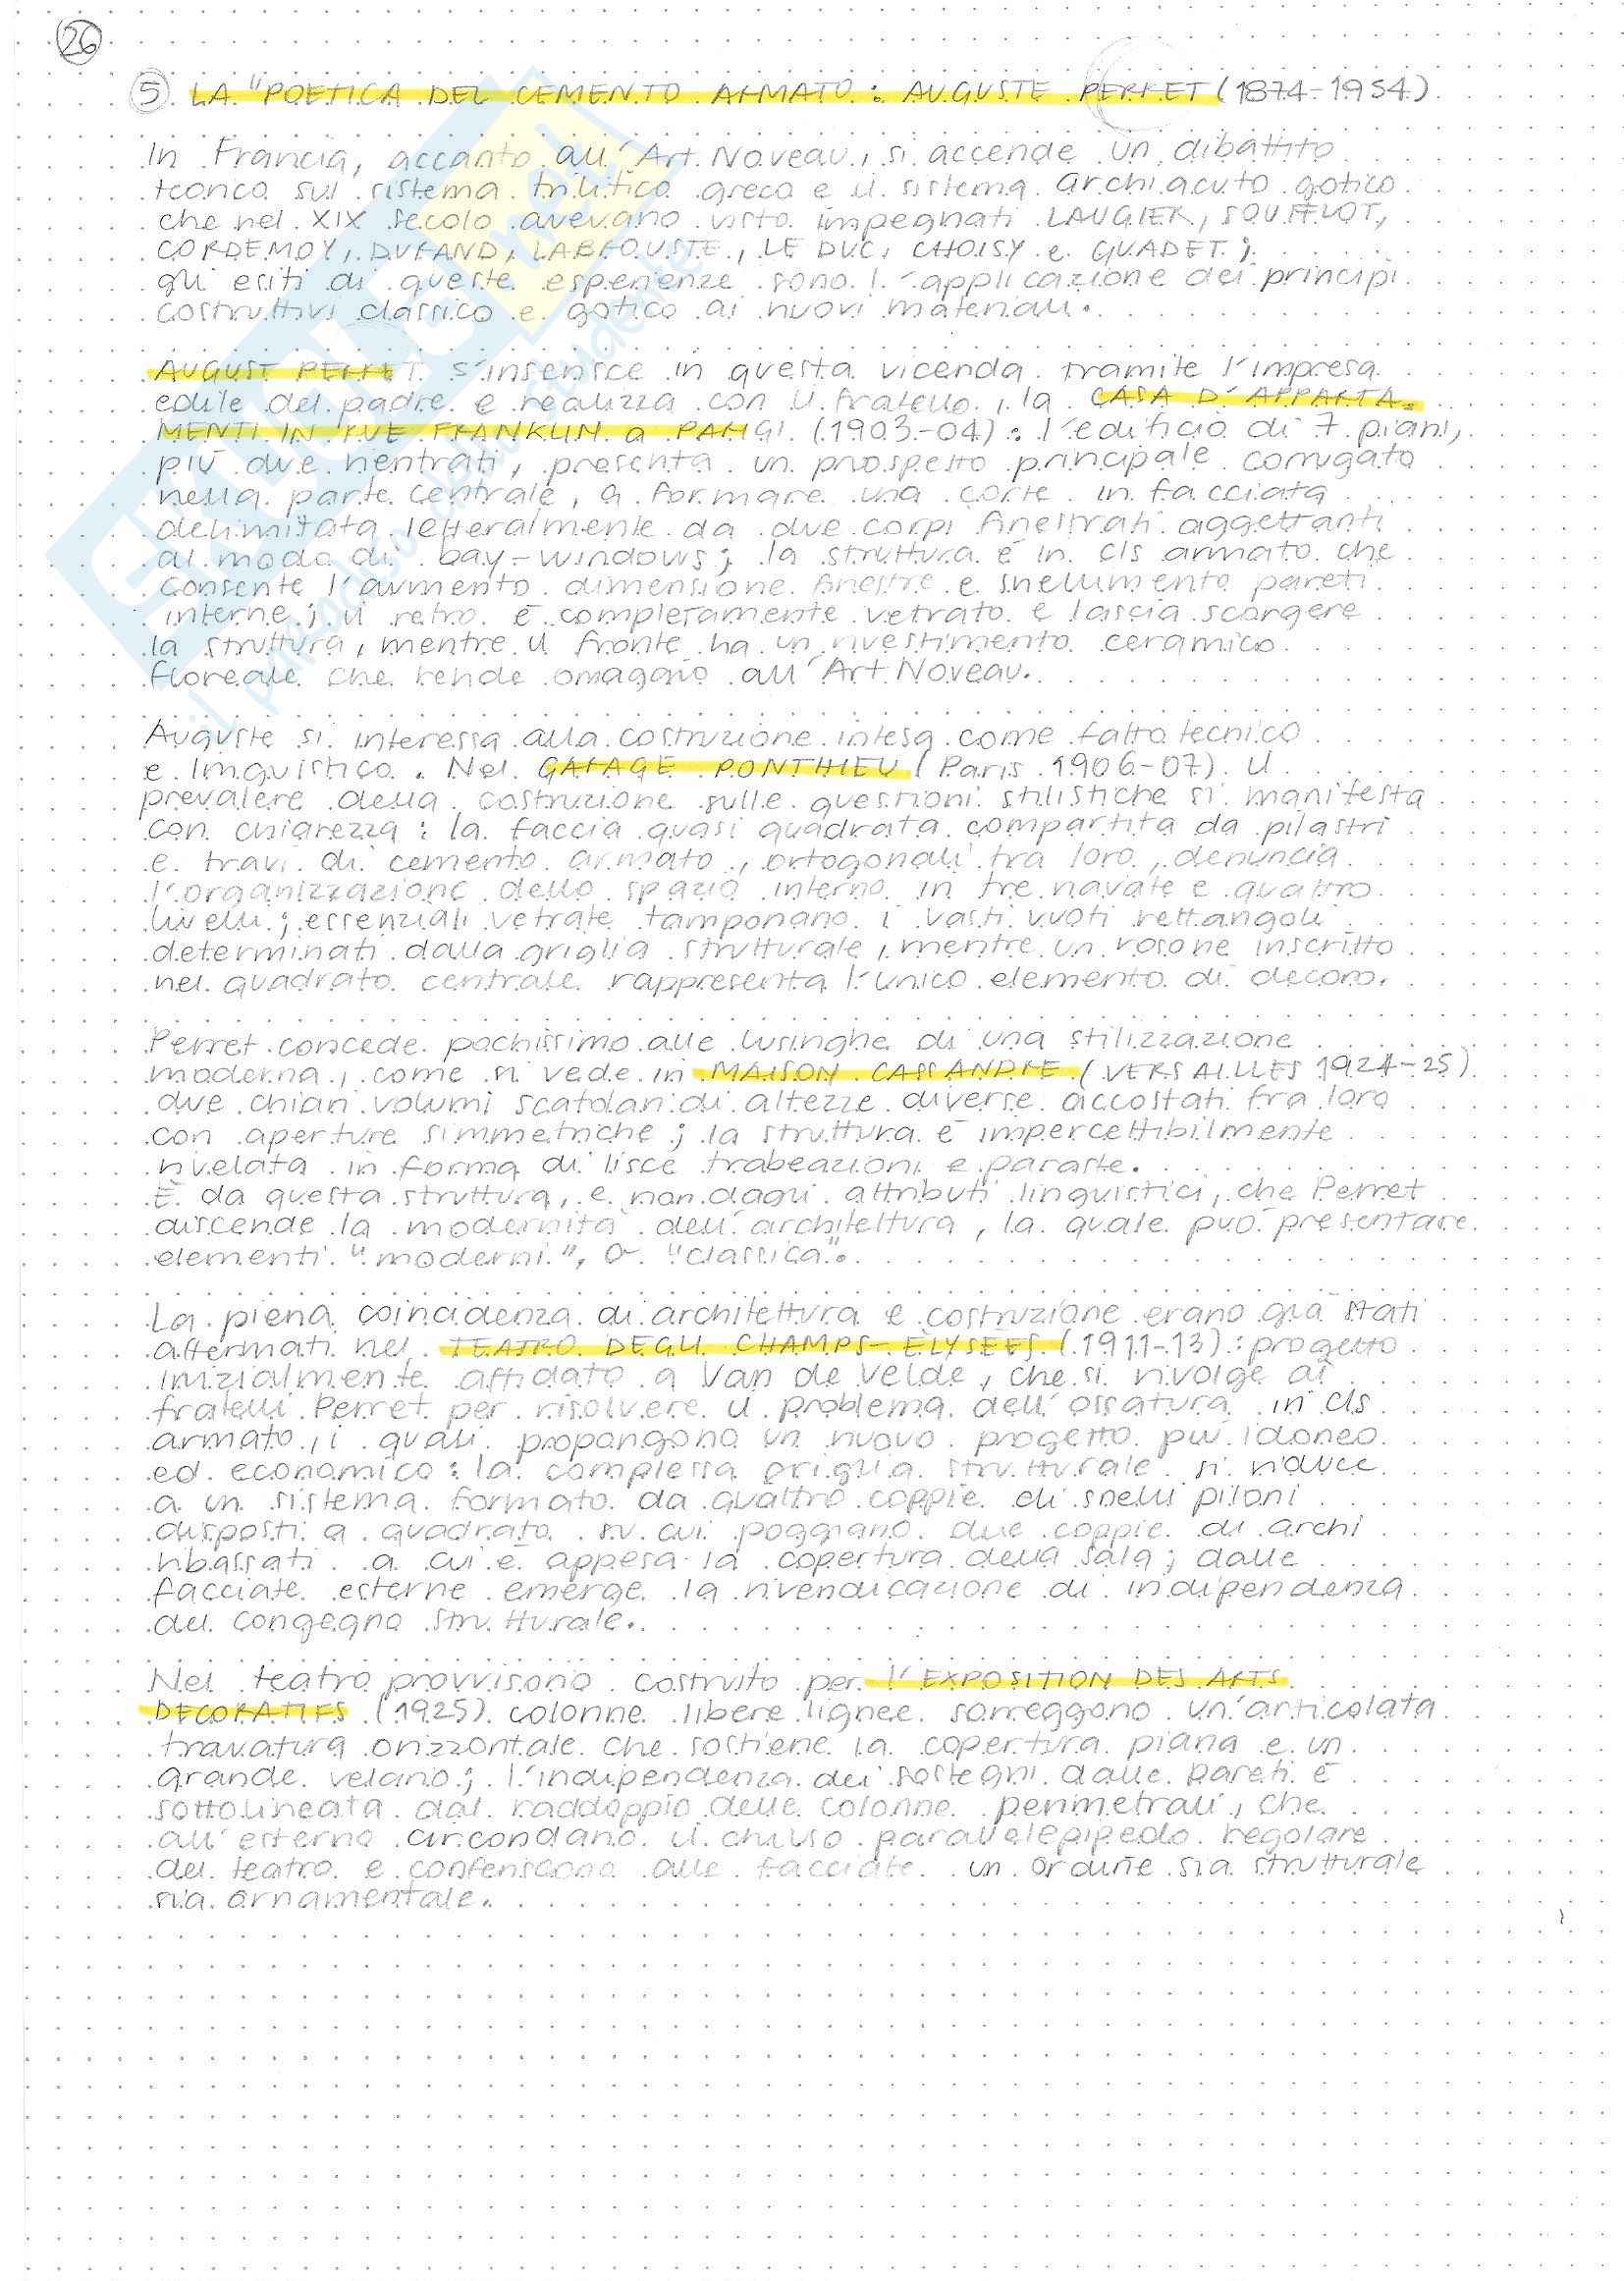 26
5 LA "POETICA DEL CEMENTO ARMATO: AUGUSTE PERRET (1874-1954)
In Francia, accanto all'Art Noveau, si accende un dibattito
teorico sul sistema trilitico greco e il sistema archiacuto gotico
che nel XIX secolo avevano visto impegnati LAUGIER, SOUFFLOT,
CORDEMOY, DURAND, LABROUSTE, LE DUC, CHOISY e GUADET;
gli esiti di queste esperienze sono l'applicazione dei principi
costruttivi classico e gotico ai nuovi materiali.
AUGUST PERRET s'inserisce in questa vicenda tramite l'impresa
edile del padre e realizza con il fratello, la CASA D'APPARTA-
MENTI IN RUE FRANKLIN a PARIGI (1903-04): l'edificio di 7 piani,
più due rientrati, presenta un prospetto principale corrugato
nella parte centrale, a formare una corte in facciata
delimitata letteralmente da due corpi finestrati aggettanti
al modo di bay-windows; la struttura è in cls armato che
consente l'aumento dimensione finestre e snellimento pareti
interne; il retro è completamente vetrato e lascia scorgere
la struttura, mentre il fronte ha un rivestimento ceramico
floreale che rende omaggio all'Art Noveau.
Auguste si interessa alla costruzione intesa come fatto tecnico
e linguistico. Nel GARAGE PONTHIEU (Paris 1906-07) il
prevalere della costruzione sulle questioni stilistiche si manifesta
con chiarezza: la faccia quasi quadrata compartita da pilastri
e travi di cemento armato, ortogonali tra loro, denuncia
l'organizzazione dello spazio interno in tre navate e quattro
livelli; essenziali vetrate tamponano i vasti vuoti rettangoli
determinati dalla griglia strutturale, mentre un rosone inscritto
nel quadrato centrale rappresenta l'unico elemento di decoro.
Perret concede pochissimo alle lusinghe di una stilizzazione
moderna, come si vede in MAISON CASSANDRE (VERSAILLES 1924-25)
due chiari volumi scatolari di altezze diverse accostati fra loro
con aperture simmetriche; la struttura è impercettibilmente
rivelata in forma di lisce trabeazioni e paraste.
È da questa struttura, e non dagli attributi linguistici, che Perret
discende la modernità dell'architettura, la quale può presentare
elementi "moderni", o "classica".
La piena coincidenza di architettura e costruzione erano già stati
affermati nel TEATRO DEGLI CHAMPS-ÈLYSEES (1911-13): progetto
inizialmente affidato a Van de Velde, che si rivolge ai
fratelli Perret per risolvere il problema dell'ossatura in cls
armato, i quali propongono un nuovo progetto più idoneo
ed economico: la complessa griglia strutturale si riduce
a un sistema formato da quattro coppie di snelli piloni
disposti a quadrato su cui poggiano due coppie di archi
ribassati a cui è appesa la copertura della sala; dalle
facciate esterne emerge la rivendicazione di indipendenza
del congegno strutturale.
Nel teatro provvisorio costruito per l'EXPOSITION DES ARTS
DECORATIFS (1925) colonne libere lignee sorreggono un'articolata
travatura orizzontale che sostiene la copertura piana e un
grande velario; l'indipendenza dei sostegni dalle pareti è
sottolineata dal raddoppio delle colonne perimetrali, che
all'esterno circondano il chiuso parallelepipedo regolare
del teatro e conferiscono alle facciate un ordine sia strutturale
sia ornamentale.